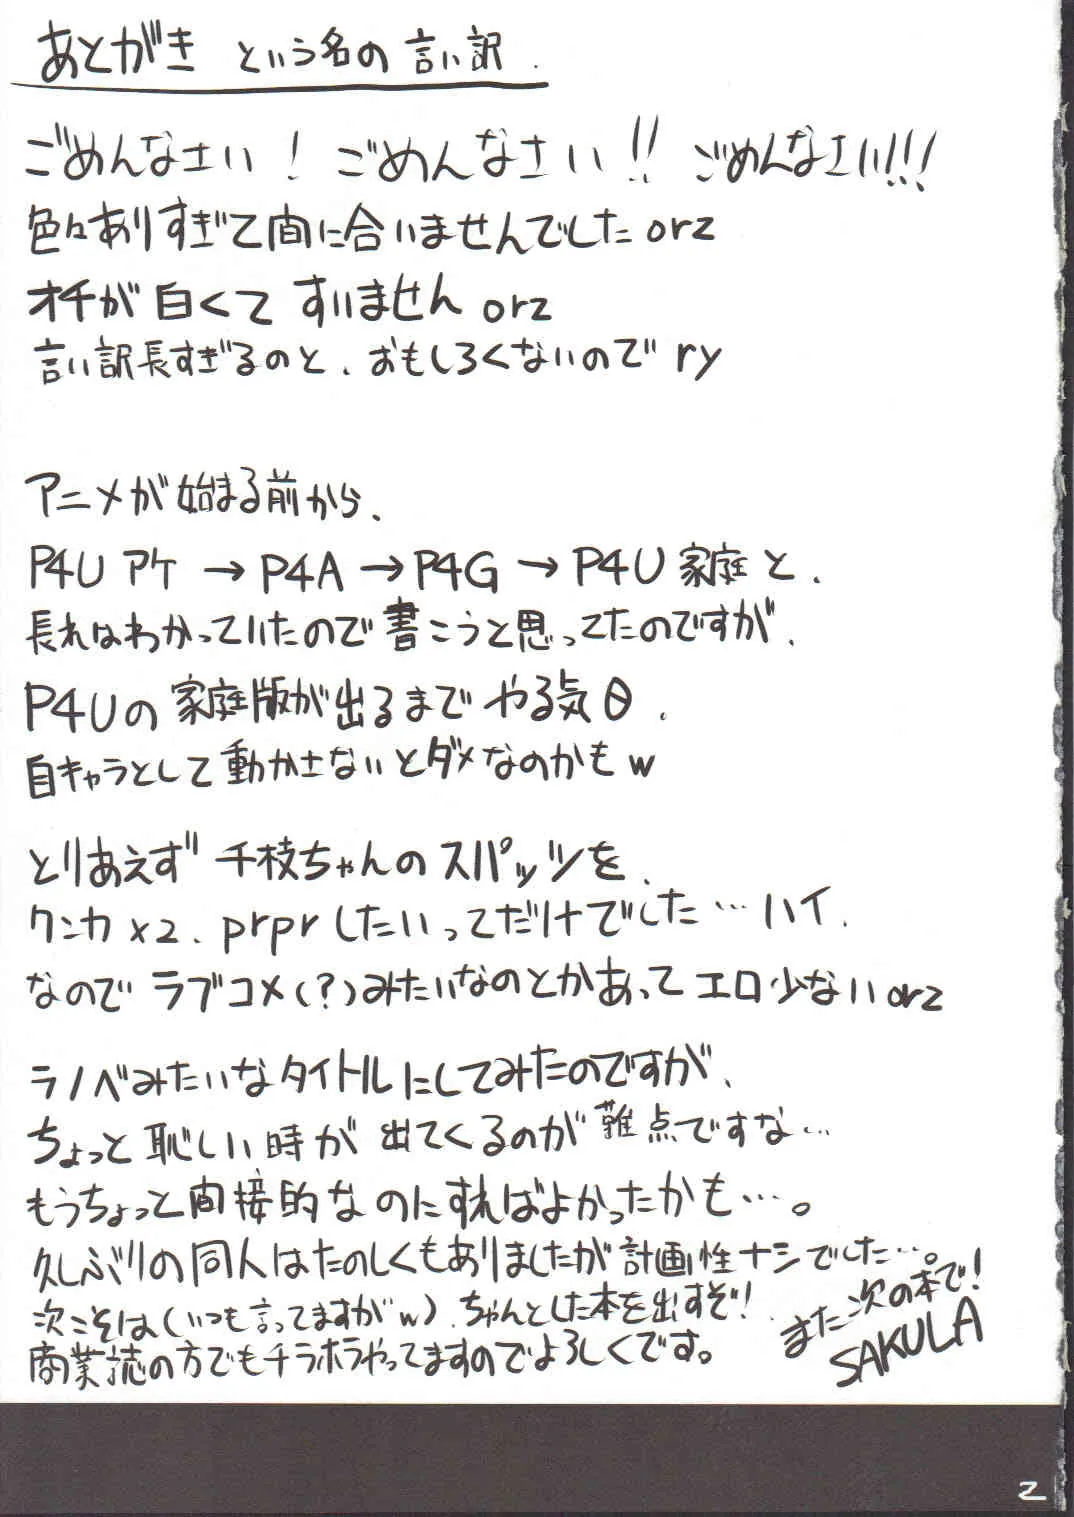 あとがき という名の 言い訳.
ごめんなさい! ごめんなさい!! ごめんなさい!!!
色々ありすぎて間に合いませんでした orz
オチが白くて すいません orz
言い訳長すぎるのと、おもしろくないので ry
アニメが始まる前から、
P4U アケ → P4A → P4G → P4U 家庭と、
長れはわかっていたので書こうと思ってたのですが、
P4Uの家庭版が出るまでやる気θ、
自キャラとして動かさないとダメなのかもw
とりあえず千枝ちゃんのスパッツを、
クンカ×2、prprしたいってだけでした…ハイ、
なのでラブコメ(?)みたいなのとかあってエロ少ないorz
ラノベみたいなタイトルにしてみたのですが、
ちょっと恥しい時が出てくるのが難点ですな…
もうちょっと間接的なのにすればよかったかも…。
久しぶりの同人はたのしくもありましたが計画性ナシでした…。
次こそは(いつも言ってますがw)、ちゃんとした本を出すぞ!
商業誌の方でもチラホラやってますのでよろしくです。
また次の本で!
SAKULA
2